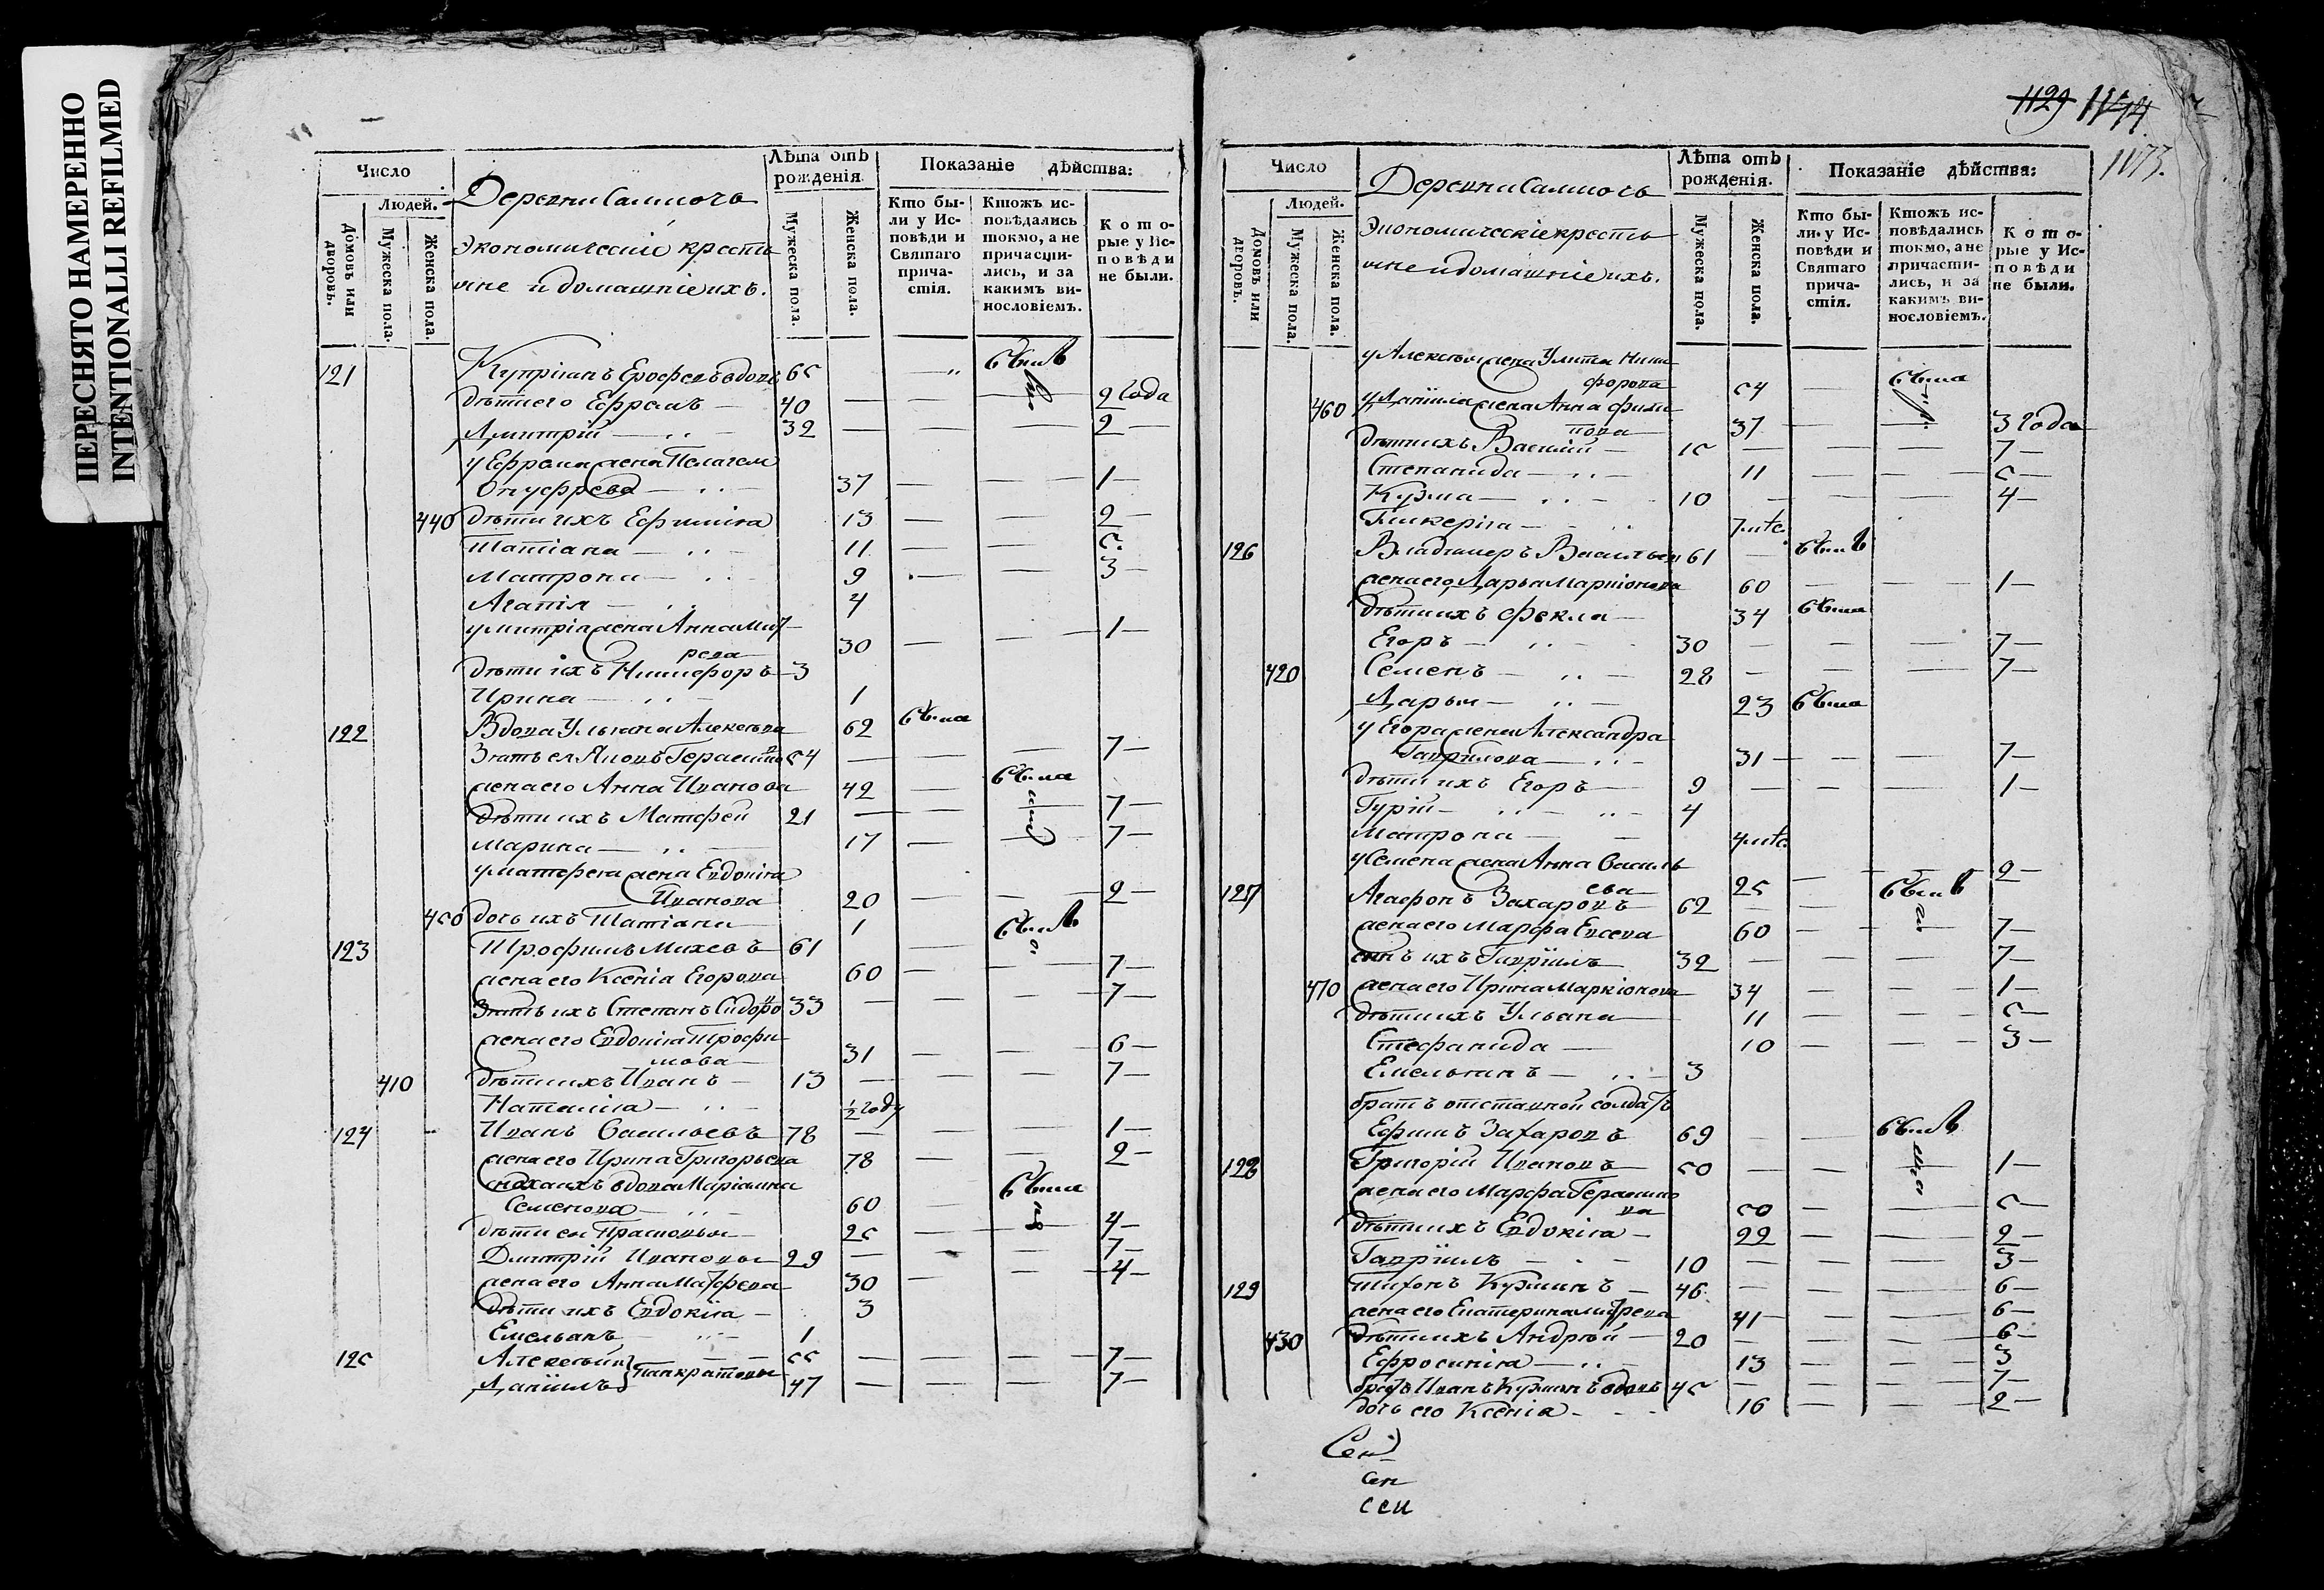 ПЕРЕСНЯТО НАМЕРЕННО
INTENTIONALLI REFILMED
Число
Людей.
Домовъ или дворовъ.
Мужеска пола.
Женска пола.
Деревни
Экономическіе кресть
яне и домашніе ихъ.
Лѣта отъ рожденія.
Мужеска пола.
Женска пола.
Показаніе дѣйства:
Кто бы-
ли у Ис-
повѣди и
Святаго
прича-
стія.
Ктожъ ис-
повѣдались
токмо, а не
причасти-
лись, и за
какимъ ви-
нословіемъ.
Кото-
рые у Ис-
повѣди
не были.
121 Купріянъ Ерофеевъ вдовъ 65
дѣти его Ефремъ 40 2 года
Дмитрій 32 2
у Ефрема жена Пелагея
Онуфрева 37 1
440 дѣти ихъ Ефимія 13 2
Татіана 11 5
Матрона 9 3
Агапія 4
у митрія жена Анна
30 1
дѣти ихъ Никифоръ 3
Ирина 1
122 Вдова Ульяна Алексѣева 62
Зять ея Яковъ Герасимовъ 54 7
жена его Анна Иванова 42
дѣти ихъ Матфей 21 7
Марина 17 7
у матфея жена Евдокія
Иванова 20 2
450 дочь ихъ Татіана 1
123 Трофимъ Михеевъ 61
жена его Ксенія Егорова 60 7
Зять ихъ Степанъ Сидоровъ 33 7
жена его Евдокія Трофи
мова 31 6
410 дѣти ихъ Иванъ 13 7
Наталія ½ году
124 Иванъ Васильевъ 78 1
жена его Ирина Григорьева 78 2
сноха ихъ вдова Маріамна
Семенова 60
дѣти ея Прасковья 25 4
Дмитрій Ивановы 29 7
жена его Анна Матфева 30 4
дѣти ихъ Евдокія 3
Емельянъ 1
125 Алексѣй 55 7
Даніилъ Панкратовы 47 7
1129
1173.
Число
Людей.
Домовъ или дворовъ.
Мужеска пола.
Женска пола.
Деревни
Экономическіе кресть
яне и домашніе ихъ.
Лѣта отъ рожденія.
Мужеска пола.
Женска пола.
Показаніе дѣйства:
Кто бы-
ли у Ис-
повѣди и
Святаго
прича-
стія.
Ктожъ ис-
повѣдались
токмо, а не
причасти-
лись, и за
какимъ ви-
нословіемъ.
Кото-
рые у Ис-
повѣди
не были.
у Алексѣя жена Улита Ники
форова 54
460 у Даніила жена Анна Фили
пова 37 3 года
дѣти ихъ Василій 15 7
Степанида 11 5
Кузма 10 4
Гликерія 7 мѣс.
126 Владимеръ Васильевъ 61
жена его Дарья Маркіонова 60 1
дѣти ихъ Фекла 34
Егоръ 30 7
420 Семенъ 28 7
Дарья 23
у Егора жена Александра
Гаврилова 31 7
дѣти ихъ Егоръ 9 1
Гурій 4
Матрона 4 мѣс
у Семена жена Анна Василь
ева 25 2
127 Агафонъ Захаровъ 62
жена его Марфа Евсева 60 7
сынъ ихъ Гавріилъ 32 7
470 жена его Ирина Маркіонова 34 1
дѣти ихъ Ульяна 11 5
Стефанида 10 3
Емельянъ 3
братъ отставной солдатъ
Ефимъ Захаровъ 69
128 Григорій Ивановъ 50 1
жена его Марфа Герасимо
ва 50 5
дѣти ихъ Евдокія 22 2
Гавріилъ 10 3
129 Тихонъ Кузминъ 46 6
жена его Екатерина 41 6
430 дѣти ихъ Андрей 20 6
Ефросинія 13 3
братъ Иванъ Кузминъ вдовъ 45 7
дочь его Ксенія 16 2